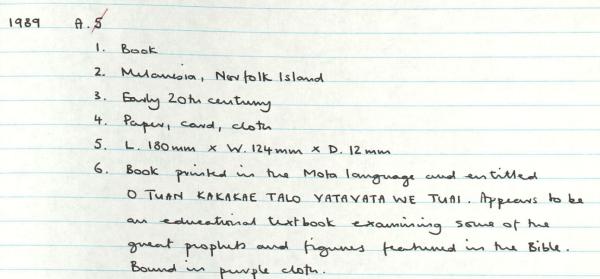 1989 A.5
1. Book
2. Melanesia, Norfolk Island
3. Early 20th century
4. Paper, card, cloth
5. L. 180mm x W. 124mm x D. 12mm
6. Book printed in the Mota language and entitled
O TUAN KAKAKAE TALO VATAVATA WE TUAI. Appears to be
an educational textbook examining some of the
great prophets and figures featured in the Bible.
Bound in purple cloth.